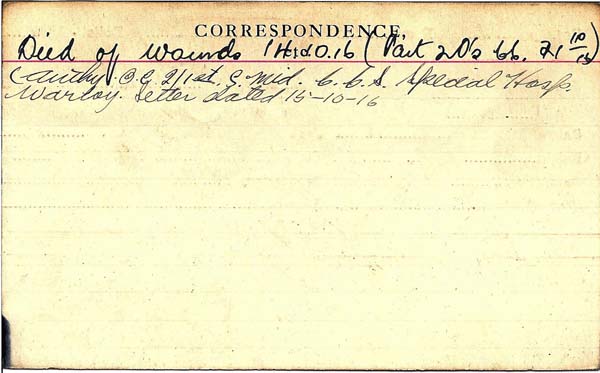 CORRESPONDENCE,
Died of wounds 14.10.16 (Part 2 O's 66. 21 10/16)
(authy. O.C. 2/1st. S. Mid. C.C.S. Special Hosp.
Warloy. Letter dated 15-10-16